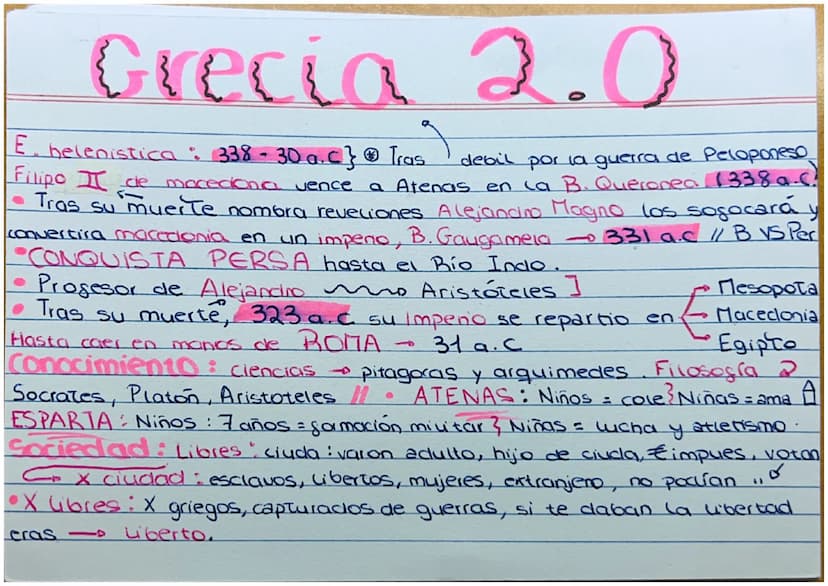 Grecia 2.0
E. helenistica : 338 - 30 a.C } * Tras debil por la guerra de Peloponeso
Filipo II de macedonia vence a Atenas en la B. Queronea (338 a.C)
• Tras su muerte nombra reveliones Alejandro Magno los sofocará y
convertira macedonia en un imperio, B. Gaugamela → 331 a.c // B VS Per
• CONQUISTA PERSA hasta el Río Indo.
• Profesor de Alejandro → Aristóteles ]
• Tras su muerte, 323 a.c su Imperio se repartio en
Mesopota
Macedonia
Egipto
Hasta caer en manos de ROMA → 31 a.C
Conocimiento : ciencias → pitagoras y arquimedes . Filosofía 2
Socrates, Platón, Aristoteles // • ATENAS : Niños = cole } Niñas = ama
ESPARTA : Niños : 7 años = formación militar } Niñas = lucha y atletismo .
Sociedad : Libres : ciuda : varon adulto, hijo de ciuda, € impues, votan
→ X ciudad : esclavos, libertos, mujeres, extranjero, no podían
• X libres : X griegos, capturados de guerras, si te daban la libertad
eras → liberto.